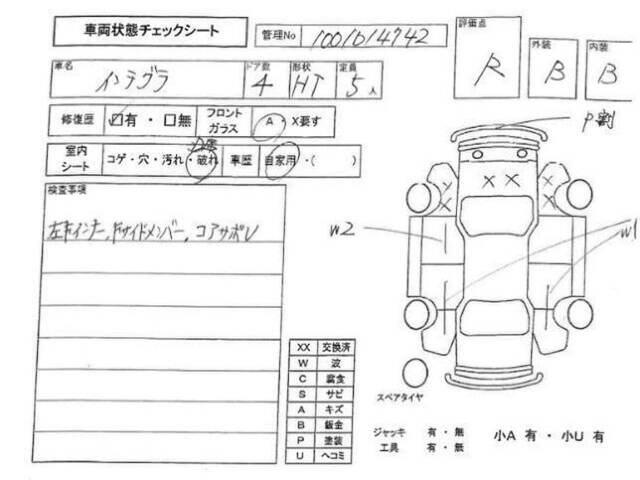 車両状態チェックシート 管理No 1001014742 評価点 R 外装 B 内装 B
車名 インテグラ ドア数 4 形状 HT 定員 5人
修復歴 ☑有・□無 フロントガラス A・X要す
室内シート コゲ・穴・汚れ・破れ 車歴 自家用・( )
検査事項
左右インナー、ドサイドメンバー、コアサポレ
P割
W2
W1
XX 交換済
W 波
C 腐食
S サビ
A キズ
B 鈑金
P 塗装
U ヘコミ
スペアタイヤ
ジャッキ 有・無
工具 有・無
小A 有・小U 有